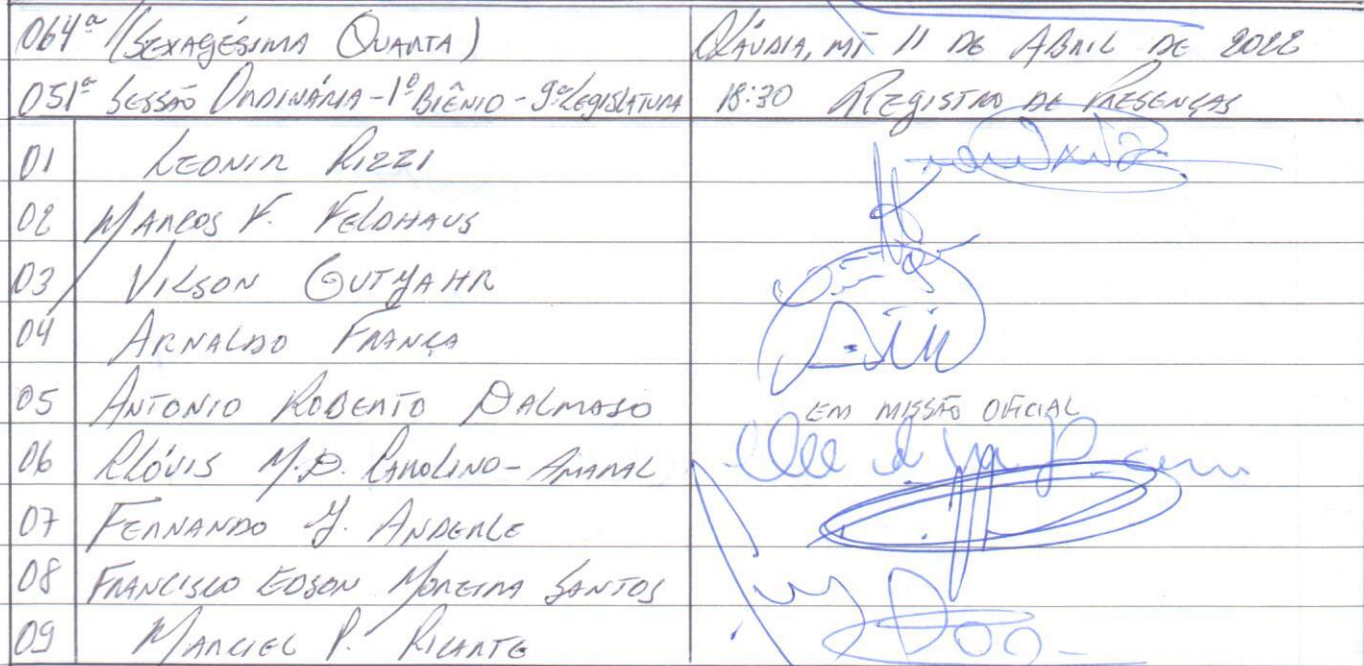 064ª (SEXAGÉSIMA QUARTA) CLÁUDIA, MT 11 DE ABRIL DE 2022
051ª SESSÃO ORDINÁRIA - 1º BIÊNIO - 9ª LEGISLATURA 18:30 REGISTRO DE PRESENÇAS
01 LEONIR RIZZI
02 MARCOS F. FELDHAUS
03 VILSON GUTYAHR
04 ARNALDO FRANÇA
05 ANTONIO ROBERTO DALMASO EM MISSÃO OFICIAL
06 CLÓVIS M.D. CAROLINO - AMARAL
07 FERNANDO Y. ANDERLE
08 FRANCISCO EDSON MOREIRA SANTOS
09 MARCIEL P. RICARTE